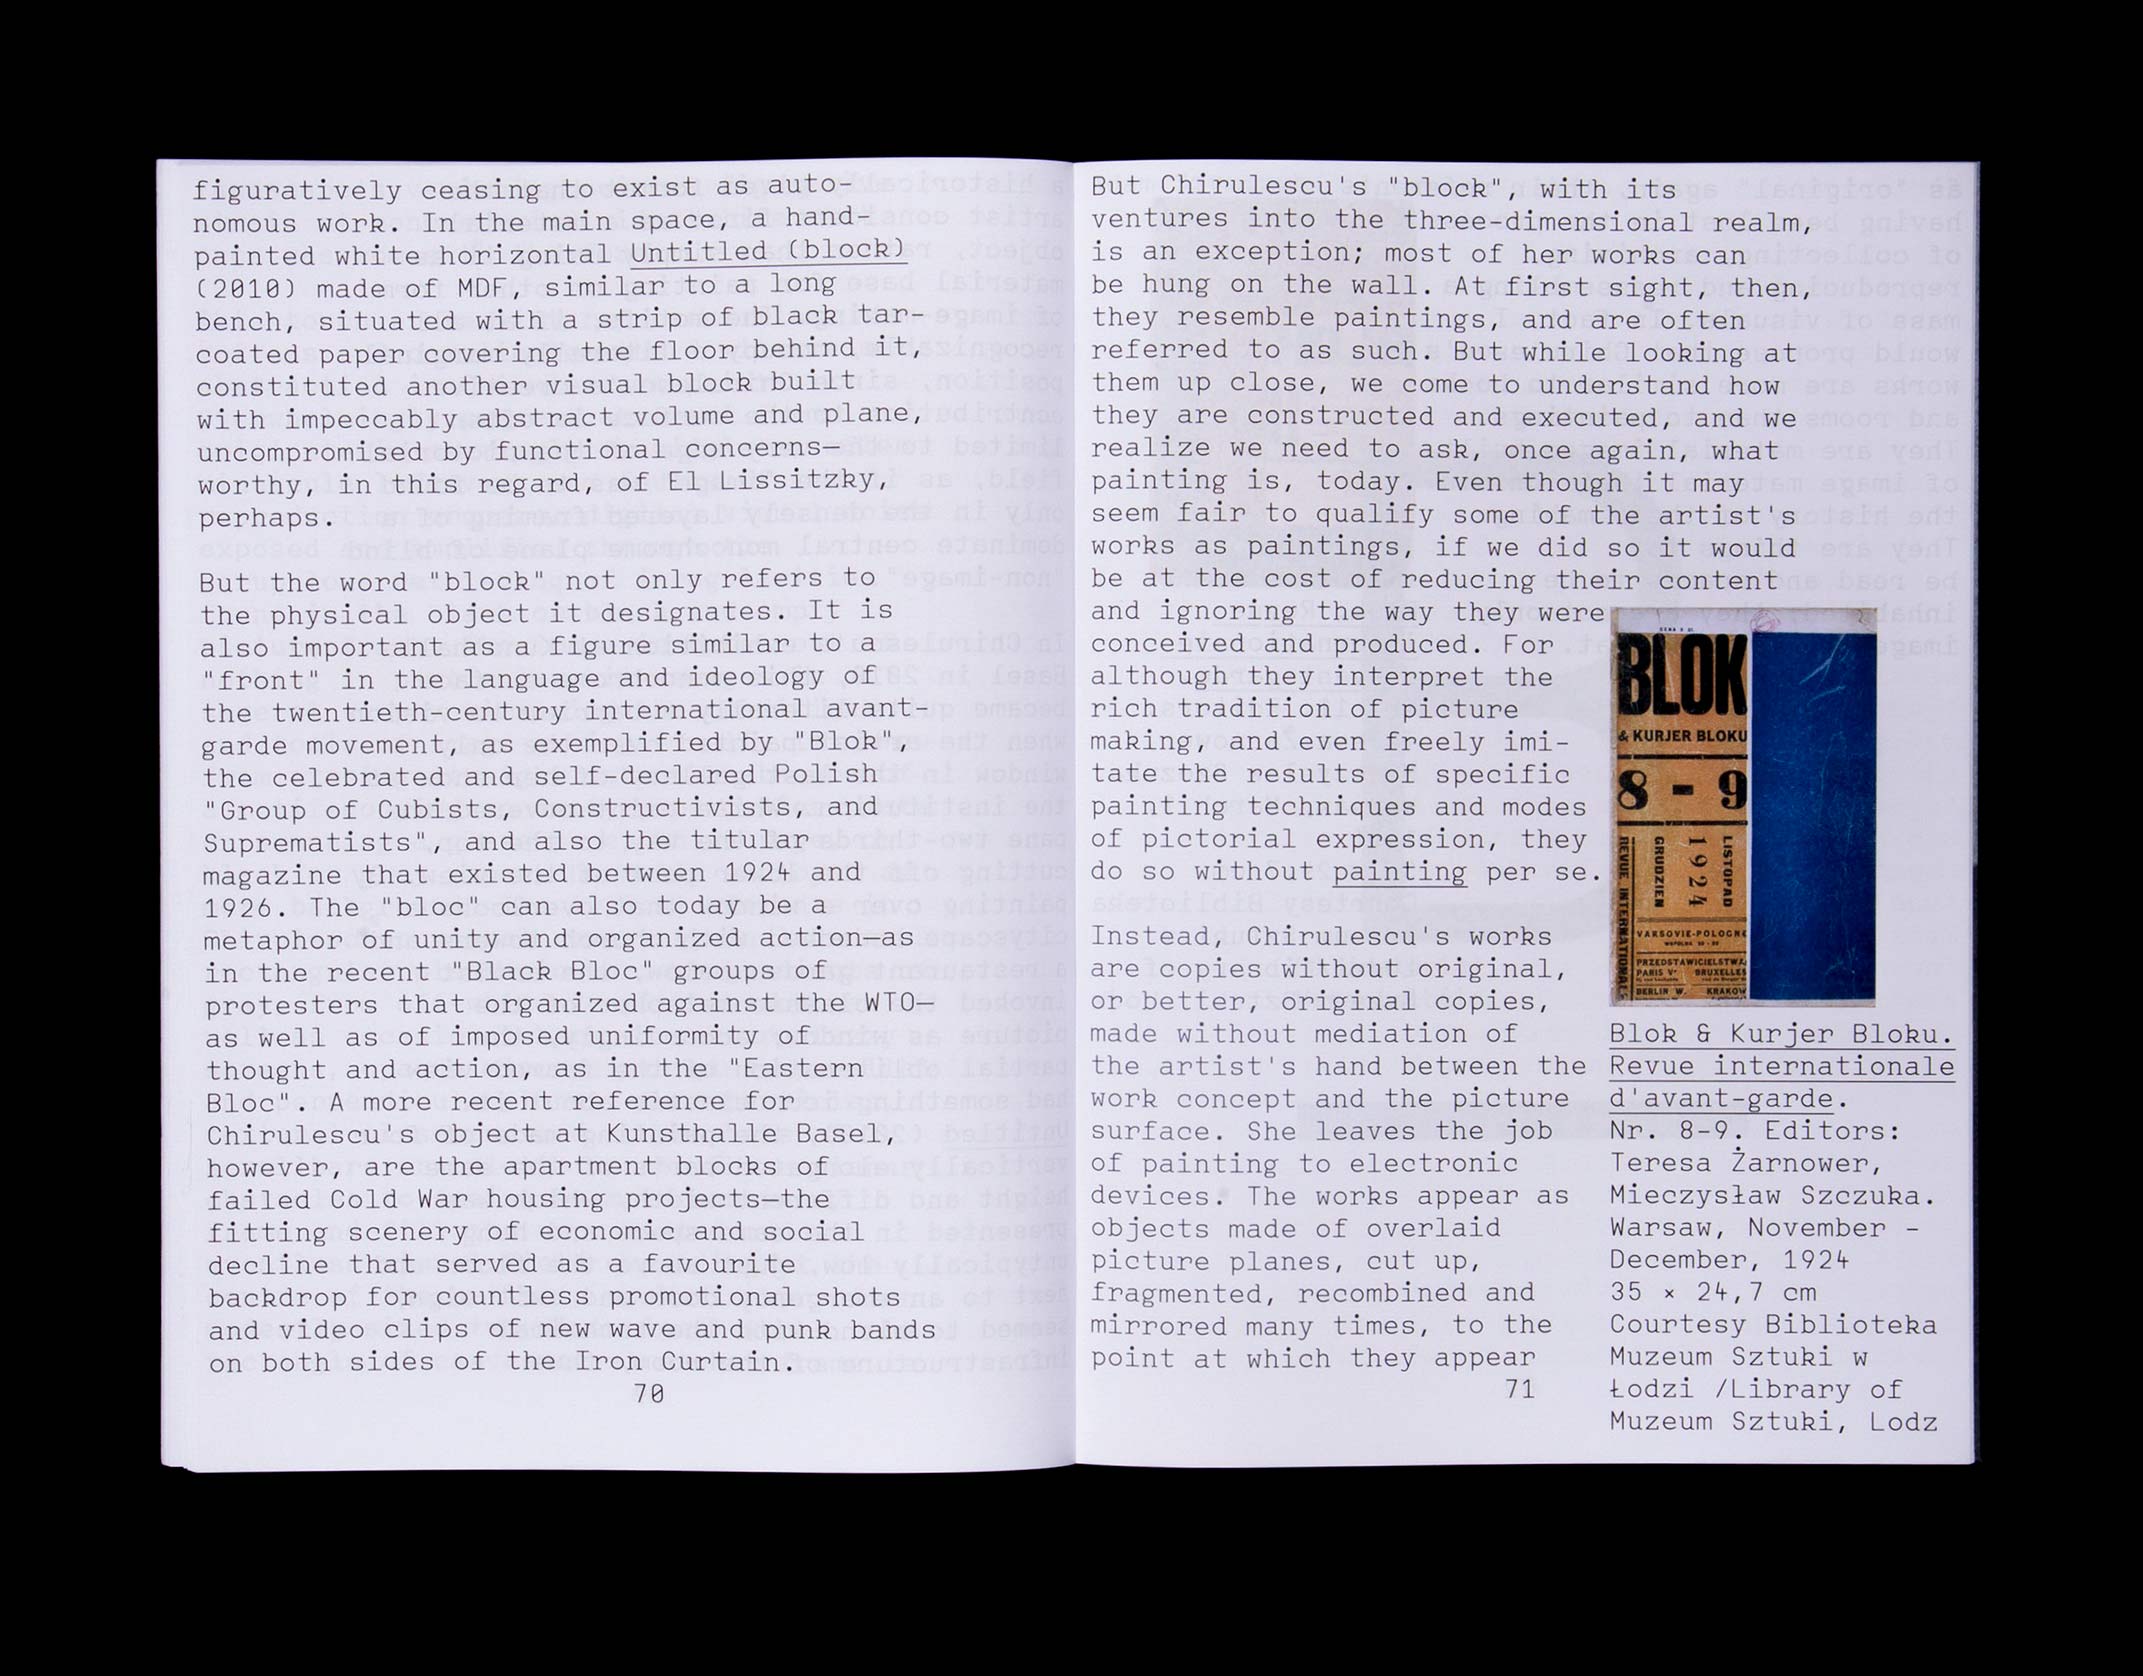 figuratively ceasing to exist as auto-
nomous work. In the main space, a hand-
painted white horizontal Untitled (block)
(2010) made of MDF, similar to a long
bench, situated with a strip of black tar-
coated paper covering the floor behind it,
constituted another visual block built
with impeccably abstract volume and plane,
uncompromised by functional concerns—
worthy, in this regard, of El Lissitzky,
perhaps.
But the word "block" not only refers to
the physical object it designates. It is
also important as a figure similar to a
"front" in the language and ideology of
the twentieth-century international avant-
garde movement, as exemplified by "Blok",
the celebrated and self-declared Polish
"Group of Cubists, Constructivists, and
Suprematists", and also the titular
magazine that existed between 1924 and
1926. The "bloc" can also today be a
metaphor of unity and organized action—as
in the recent "Black Bloc" groups of
protesters that organized against the WTO—
as well as of imposed uniformity of
thought and action, as in the "Eastern
Bloc". A more recent reference for
Chirulescu's object at Kunsthalle Basel,
however, are the apartment blocks of
failed Cold War housing projects—the
fitting scenery of economic and social
decline that served as a favourite
backdrop for countless promotional shots
and video clips of new wave and punk bands
on both sides of the Iron Curtain.
70
But Chirulescu's "block", with its
ventures into the three-dimensional realm,
is an exception; most of her works can
be hung on the wall. At first sight, then,
they resemble paintings, and are often
referred to as such. But while looking at
them up close, we come to understand how
they are constructed and executed, and we
realize we need to ask, once again, what
painting is, today. Even though it may
seem fair to qualify some of the artist's
works as paintings, if we did so it would
be at the cost of reducing their content
and ignoring the way they were
conceived and produced. For
although they interpret the
rich tradition of picture
making, and even freely imi-
tate the results of specific
painting techniques and modes
of pictorial expression, they
do so without painting per se.
Instead, Chirulescu's works
are copies without original,
or better, original copies,
made without mediation of
the artist's hand between the
work concept and the picture
surface. She leaves the job
of painting to electronic
devices. The works appear as
objects made of overlaid
picture planes, cut up,
fragmented, recombined and
mirrored many times, to the
point at which they appear
71
BLOK
& KURJER BLOKU
8 - 9
LISTOPAD
1924
GRUDZIEN
REVUE INTERNATIONALE
VARSOVIE-POLOGNE
PRZEDSTAWICIELSTWA
PARIS Ve BRUXELLES
BERLIN W. KRAKOW
Blok & Kurjer Bloku.
Revue internationale
d'avant-garde.
Nr. 8-9. Editors:
Teresa Żarnower,
Mieczysław Szczuka.
Warsaw, November -
December, 1924
35 × 24,7 cm
Courtesy Biblioteka
Muzeum Sztuki w
Łodzi /Library of
Muzeum Sztuki, Lodz